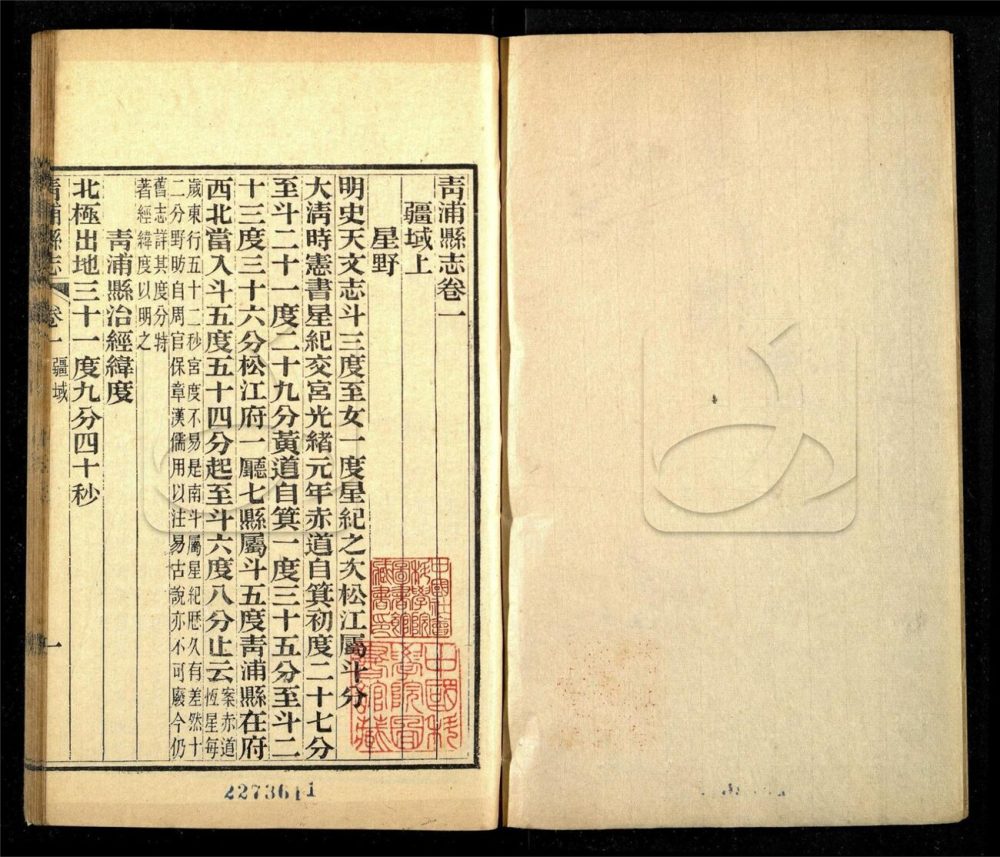 青浦縣志卷一
疆域上
星野
明史天文志斗三度至女一度星紀之次松江屬斗分
大淸時憲書星紀交宮光緒元年赤道自箕初度二十七分
至斗二十一度二十九分黃道自箕一度三十五分至斗二
十三度三十六分松江府一廳七縣屬斗五度靑浦縣在府
西北當入斗五度五十四分起至斗六度八分止云案赤道恆星每
歲東行五十二秒宮度不易是南斗屬星紀歷久有差然十
二分野昉自周官保章漢儒用以注易古說亦不可廢今仍
舊志詳其度分特
著經緯度以明之
靑浦縣治經緯度
北極出地三十一度九分四十秒
靑浦縣志 卷一 疆域 一
中國科學院圖書館藏
2273611